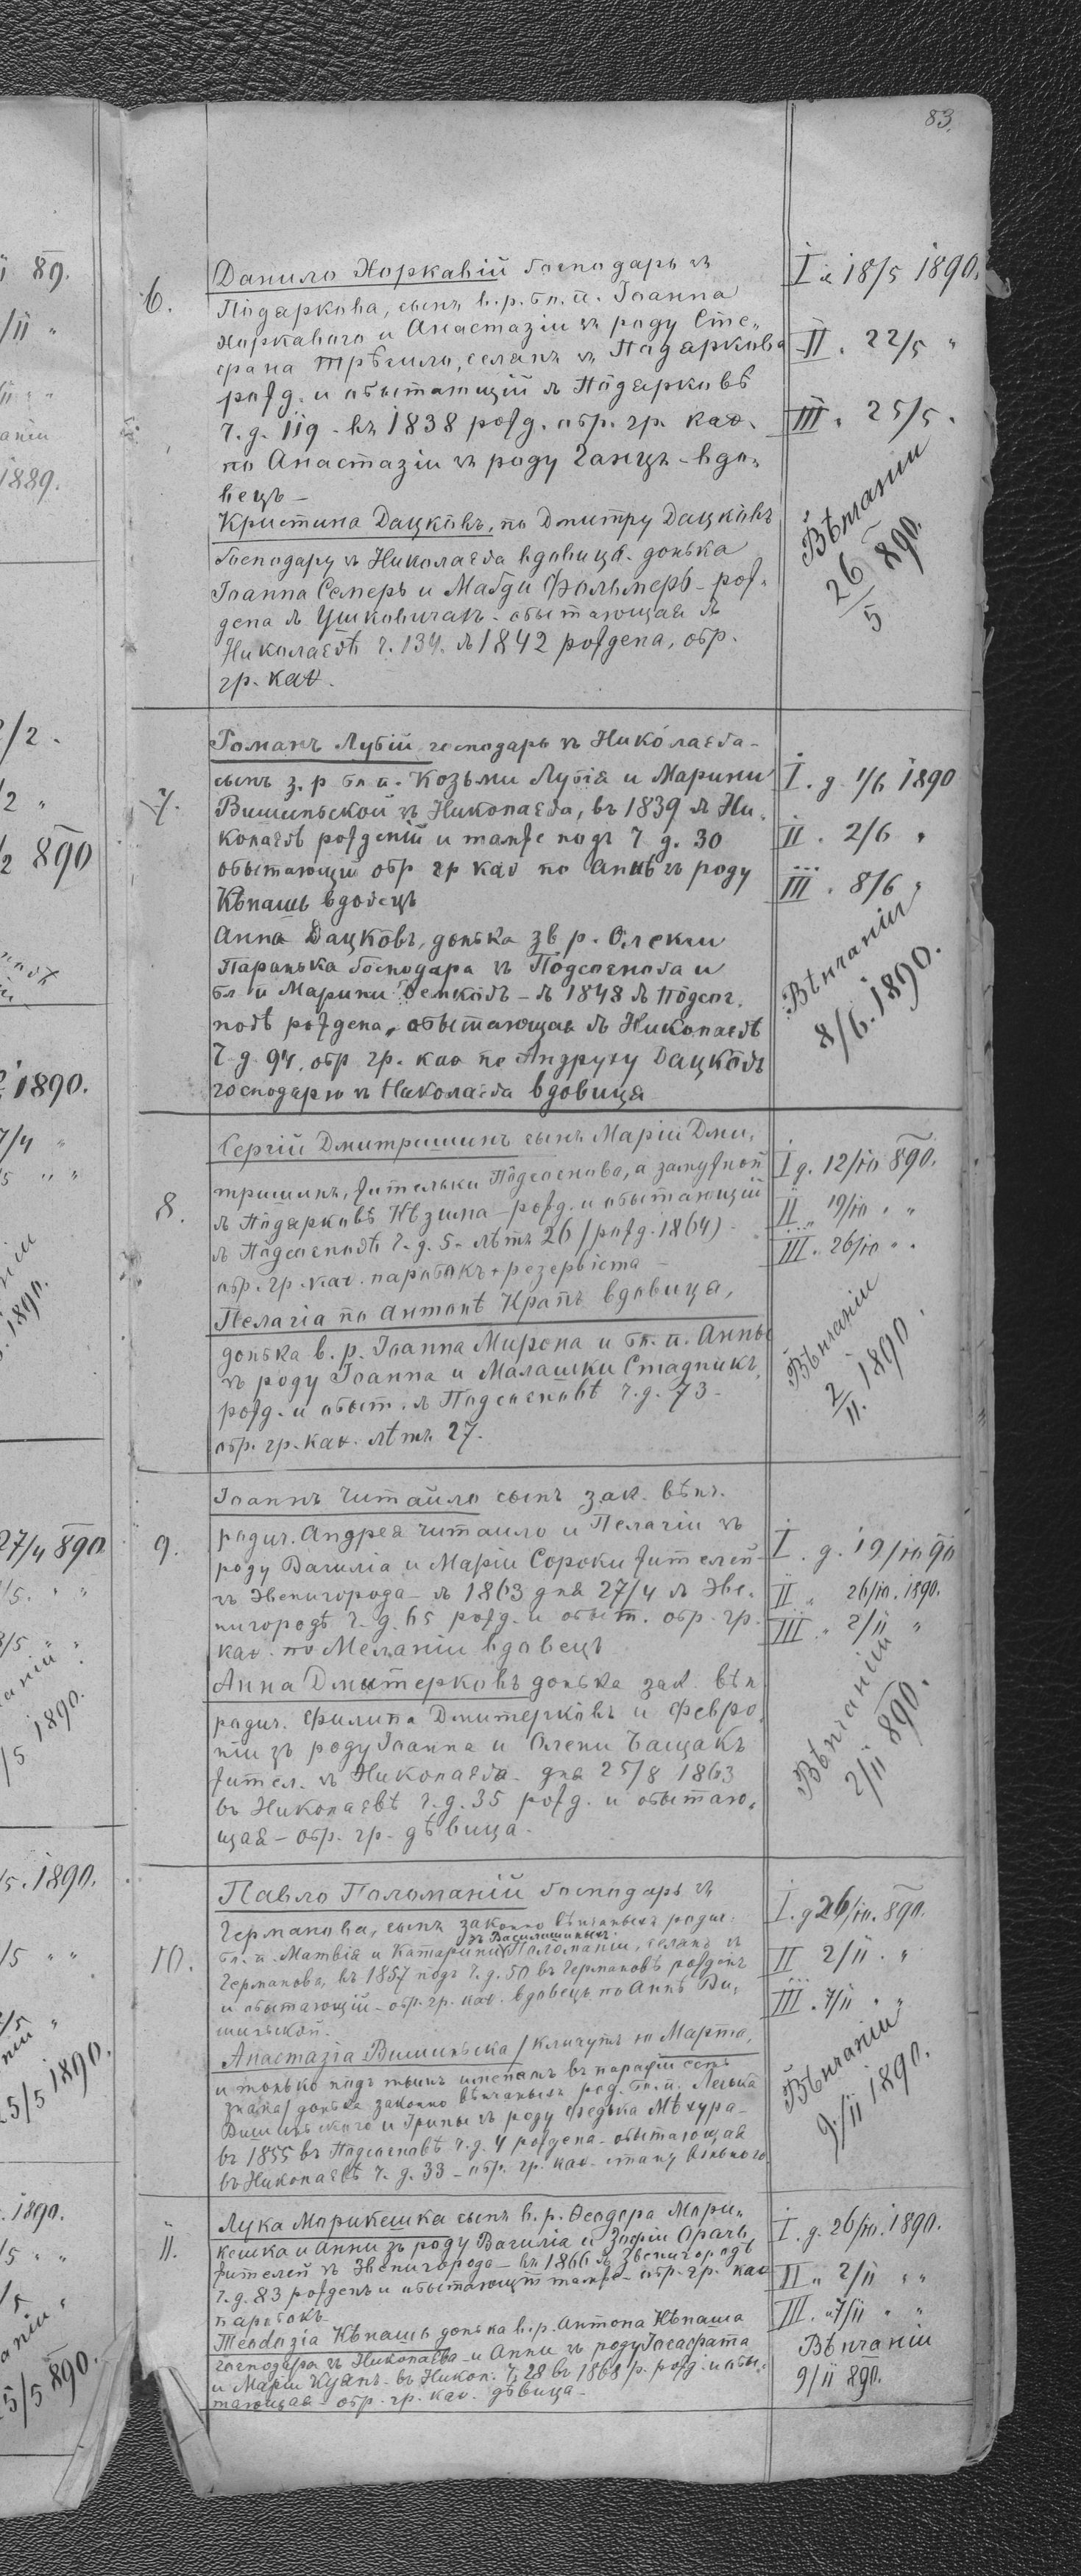 83.
6.
Данило Хоркавій господарь зъ
Пôдяркова, сынъ в. р. бл. п. Іоанна
Хоркавого и Анастазіи зъ роду Сте„
фана, селянъ зъ Пôдяркова
рожд. и обытающій въ Пôдярковѣ
ч. д. 119 - въ 1838 рожд. обр. гр. каѳ.
по Анастазіи зъ роду Ганецъ - вдо„
вецъ -
Кристина Дацкôвъ, по Дмитру Дацкôвъ
Господару зъ Николаева вдовиця. донька
Іоанна Семеръ и Магди Фольмеръ - рож„
дена въ Ушковичах - обытающая въ
Николаевѣ ч. 134. въ 1842 рождена, обр.
гр. каѳ.
I д 18/5 1890.
II „ 22/5 „
III „ 25/5 „
Вѣнчаніи
26/5 890.
7.
Романъ Лубій господарь зъ Николаева -
сынъ з. р. бл. п. Козьми Лубія и Марини
Вишиньской зъ Николаева, въ 1839 въ Ни„
колаевѣ рожденій и тамже подъ ч. д. 30
обытающій обр гр каѳ по Аннѣ зъ роду
Кѣпашь вдовецъ
Анна Дацкôвъ, донька зв р. Олекси
Паранька Господара зъ Подсоснова и
бл п Марини Демкôвъ - въ 1848 въ Пôдсос„
новѣ рождена, обытающая въ Николаевѣ
Ч. д. 94, обр гр. каѳ по Андруху Дацкôвъ
господарю зъ Николаева вдовиця
I. д. 1/6 1890
II . 2/6 „
III . 8/6 „
Вѣнчаніи
8/6. 1890.
8.
Сергій Дмитришинъ сынъ Маріи Дми„
тришинъ, жительки Пôдсоснова, а замужной
въ Пôдярковѣ рожд. и обытающій
въ Пôдсосновѣ ч. д. 5 - лѣтъ 26 /рожд. 1864) -
обр. гр. каѳ. паробокъ + резервіста -
Пелагія по Антонѣ Крапъ вдовица,
донька в. р. Іоанна Мирона и бл. п. Анны
зъ роду Іоанна и Малашки Стадникъ,
рожд. и обыт. въ Подсосновѣ ч. д. 73 -
обр. гр. каѳ. лѣтъ 27.
I д. 12/10 890.
II „ 19/10 „ „
III „ 26/10 „ „
Вѣнчаніи
2/11. 1890.
9.
Іоаннъ Читайло сынъ зак. вѣнч.
родич. Андрея Читайло и Пелагіи зъ
роду Василія и Маріи Сороки жителей
зъ Звенигорода - въ 1863 дня 27/4 въ Зве„
нигородѣ ч. д. 65 рожд. и обыт. обр. гр.
каѳ. по Меланіи вдовецъ
Анна Дмитеркôвъ донька зак. вѣн.
родич. Филипа Дмитеркôвъ и Февро„
ніи зъ роду Іоанна и Олени Бащакъ
жител. зъ Николаева - дня 25/8 1863
въ Николаевѣ ч. д. 35 рожд. и обытаю„
щая - обр. гр. дѣвица -
I. д. 19/10 90
II „ 26/10. 1890.
III „ 2/11 „
Вѣнчаніи
2/11 890.
10.
Павло Поломаній господарь зъ
Германова, сынъ законно вѣнчаныхъ родич.
зъ Василишиныхъ
бл. п. Матвія и Катарины Поломаніи, селянъ зъ
Германова, въ 1857 подъ ч. д. 50 въ Германовѣ рожденъ
и обытающій - обр. гр. каѳ. вдовецъ по Аннѣ Ви„
шиньской.
Анастазія Вишиньска /кличутъ ю Марта,
и тôлько пôдъ тымъ именемъ въ парафіи есть
знана/ донька законно вѣнчаныхъ род. бл. п. Леська
Вишиньского и Грини зъ роду Федька Мѣхура -
въ 1855 въ Подсосновѣ ч. д. 4 рождена - обытающая
въ Николаевѣ ч. д. 33 - обр. гр. каѳ. стану вольного
I. д 26/10. 890.
II 2/11 . „
III „ 7/11 „ „
Вѣнчаніи
9/11 1890.
11.
Лука Марикешка сынъ в. р. Ѳеодора Мари„
кешка и Анни зъ роду Василія и Зофіи Орачь,
жителей зъ Звенигорода - въ 1866 въ Звенигородѣ
ч. д. 83 рожденъ и обытающій тамже - обр. гр. каѳ
паробокъ
Теодозія Кѣпашь донька в. р. Антона Кѣпаша
господара зъ Николаева - и Анни зъ роду Іосафата
и Маріи - въ Никол. ч. 28 въ 1868 р. рожд. и обы„
тающая - обр. гр. каѳ. дѣвица -
I. д. 26/10. 1890.
II „ 2/11 „ „
III. „ 7/11 „ „
Вѣнчаніи
9/11 890.